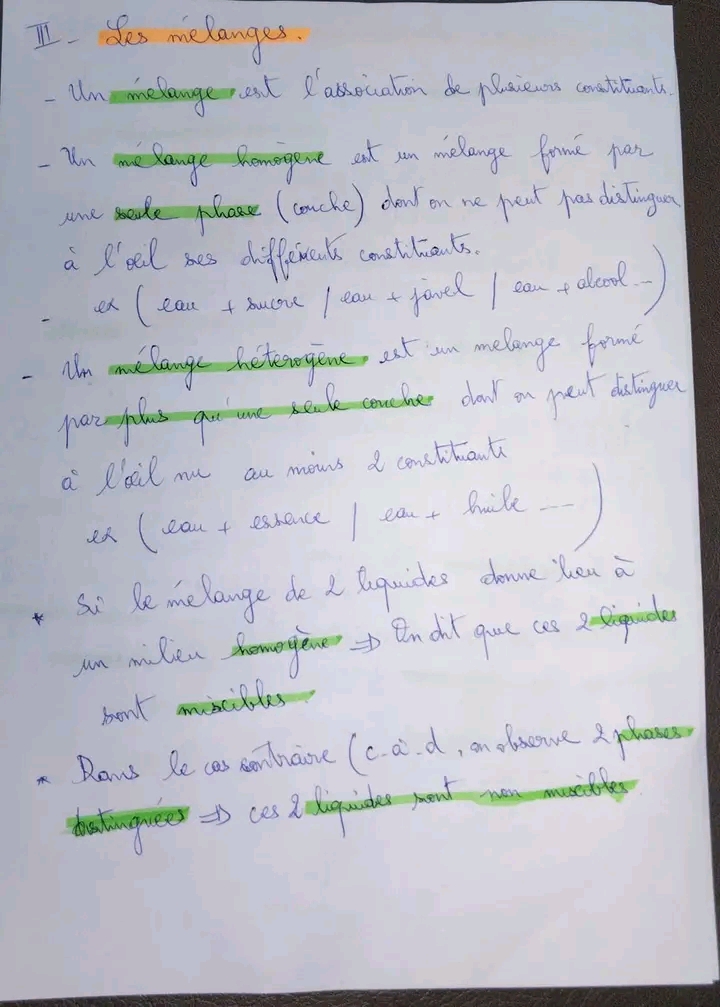 III - Les mélanges.
- Un mélange est l'association de plusieurs constituants.
- Un mélange homogène est un mélange formé par
une seule phase (couche) dont on ne peut pas distinguer
à l'oeil ses différents constituants.
- ex (eau + sucre / eau + javel / eau + alcool...)
- Un mélange hétérogène est un mélange formé
par plus qu'une seule couche dont on peut distinguer
à l'oeil nu au moins 2 constituants
ex (eau + essence / eau + huile ....)
* Si le mélange de 2 liquides donne lieu à
un milieu homogène => On dit que ces 2 liquides
sont miscibles.
* Dans le cas contraire (c-à-d, on observe 2 phases
distinguées => ces 2 liquides sont non miscibles.